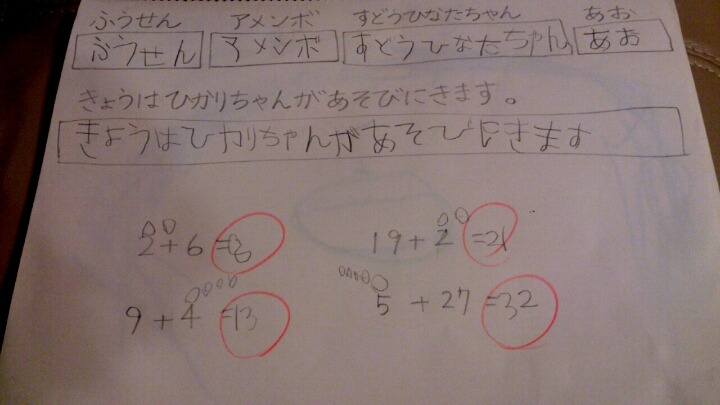 ふうせん アメンボ すどうひなたちゃん あお
ふうせん アメンボ すどうひなたちゃん あお
きょうはひかりちゃんがあそびにきます。
きょうはひかりちゃんがあそびにきます
2+6=8 19+2=21
9+4=13 5+27=32